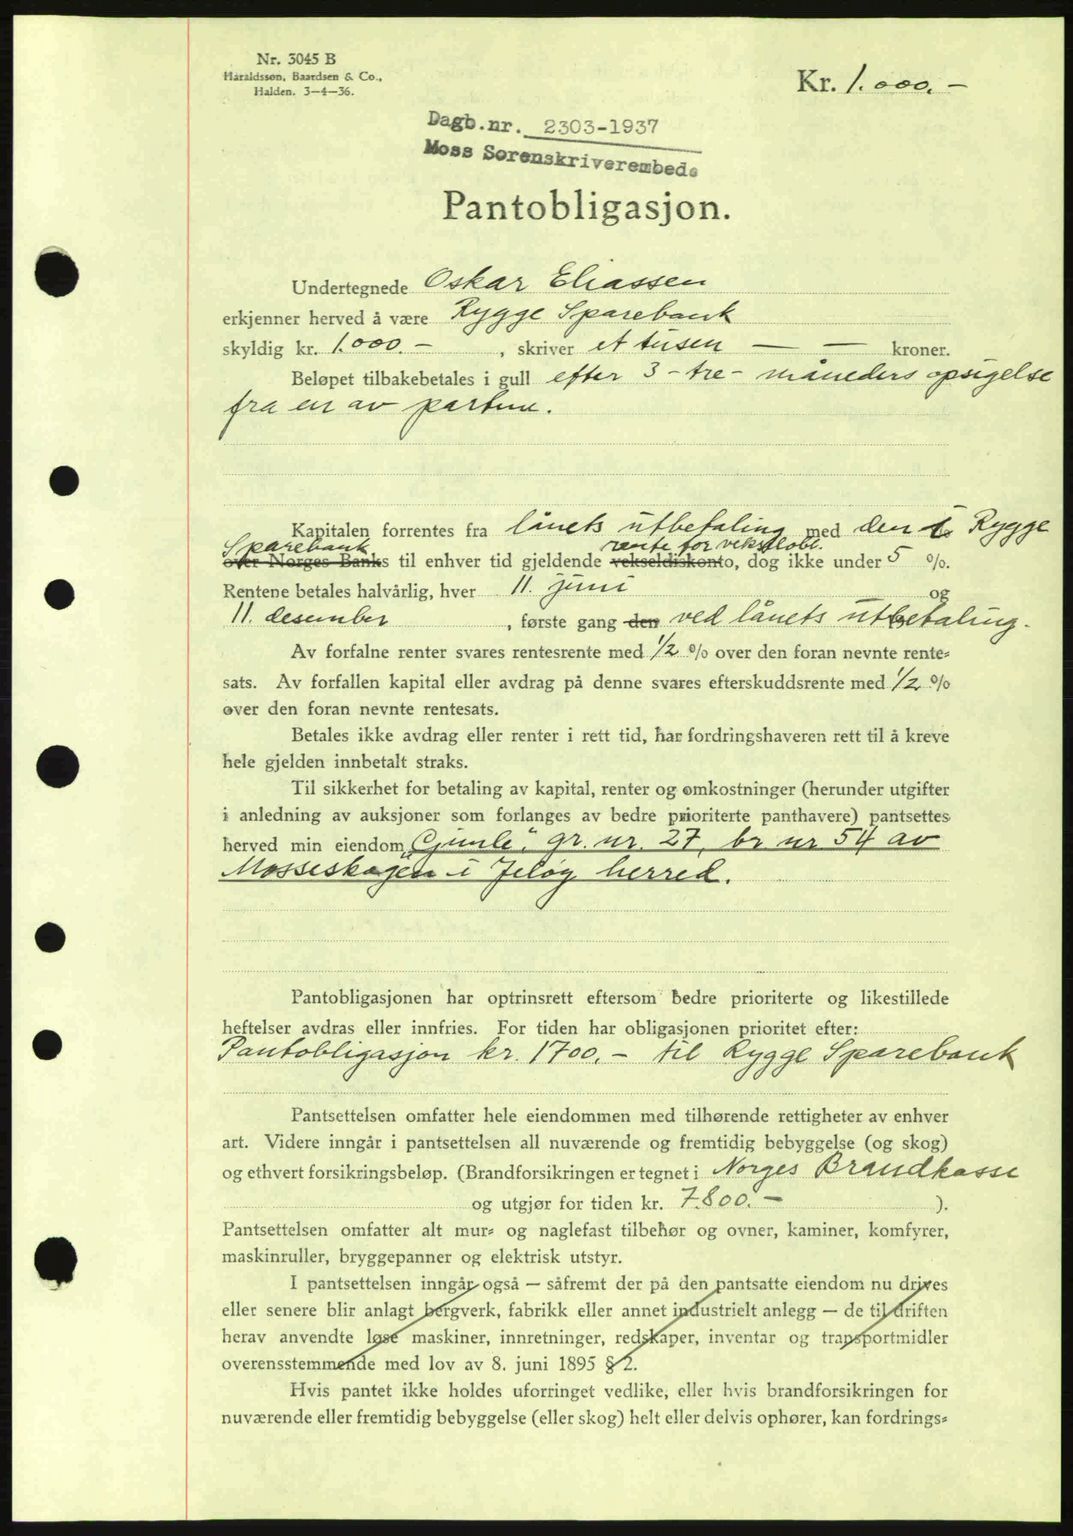 Nr. 3045 B
Haraldsson, Baardsen & Co.,
Halden. 3—4—36.
Kr. 1.000.-
Dagb.nr. 2303-1937
Moss Sorenskriverembede
Pantobligasjon.
Undertegnede Oskar Eliassen
erkjenner herved å være Rygge Sparebank
skyldig kr. 1.000.- , skriver et tusen — — kroner.
Beløpet tilbakebetales i gull efter 3 - tre - måneders opsigelse
fra en av partene.
Kapitalen forrentes fra lånets utbetaling med den i Rygge
Sparebank rente for vekselobl.
over Norges Banks til enhver tid gjeldende vekseldiskonto, dog ikke under 5 %.
Rentene betales halvårlig, hver 11. juni og
11. desember , første gang den ved lånets utbetaling.
Av forfalne renter svares rentesrente med 1/2 % over den foran nevnte rente-
sats. Av forfallen kapital eller avdrag på denne svares efterskuddsrente med 1/2 %
over den foran nevnte rentesats.
Betales ikke avdrag eller renter i rett tid, har fordringshaveren rett til å kreve
hele gjelden innbetalt straks.
Til sikkerhet for betaling av kapital, renter og omkostninger (herunder utgifter
i anledning av auksjoner som forlanges av bedre prioriterte panthavere) pantsettes
herved min eiendom „Gimle", gr. nr. 27, br nr 54 av
Mosseskogen i Jeløy herred.
Pantobligasjonen har optrinsrett eftersom bedre prioriterte og likestillede
heftelser avdras eller innfries. For tiden har obligasjonen prioritet efter:
Pantobligasjon kr. 1700.- til Rygge Sparebank
Pantsettelsen omfatter hele eiendommen med tilhørende rettigheter av enhver
art. Videre inngår i pantsettelsen all nuværende og fremtidig bebyggelse (og skog)
og ethvert forsikringsbeløp. (Brandforsikringen er tegnet i Norges Brandkasse
og utgjør for tiden kr. 7.800.- ).
Pantsettelsen omfatter alt mur- og naglefast tilbehør og ovner, kaminer, komfyrer,
maskinruller, bryggepanner og elektrisk utstyr.
I pantsettelsen inngår også — såfremt der på den pantsatte eiendom nu drives
eller senere blir anlagt bergverk, fabrikk eller annet industrielt anlegg — de til driften
herav anvendte løse maskiner, innretninger, redskaper, inventar og transportmidler
overensstemmende med lov av 8. juni 1895 § 2.
Hvis pantet ikke holdes uforringet vedlike, eller hvis brandforsikringen for
nuværende eller fremtidig bebyggelse (eller skog) helt eller delvis ophører, kan fordrings-